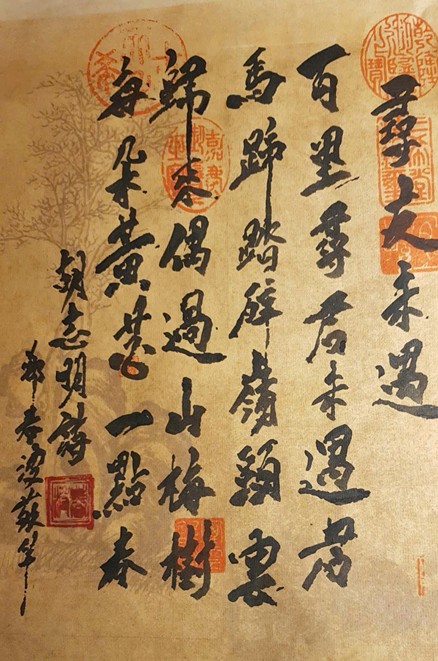 尋友未遇
百里尋君未遇君
馬蹄踏碎嶺頭雲
歸來偶過山梅樹
每朵黃花一點春
胡志明詩
春波敬筆